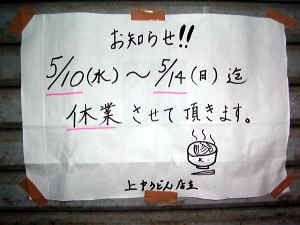 お知らせ!!
5/10(水)～5/14(日)迄
休業させて頂きます。
上やうどん店主